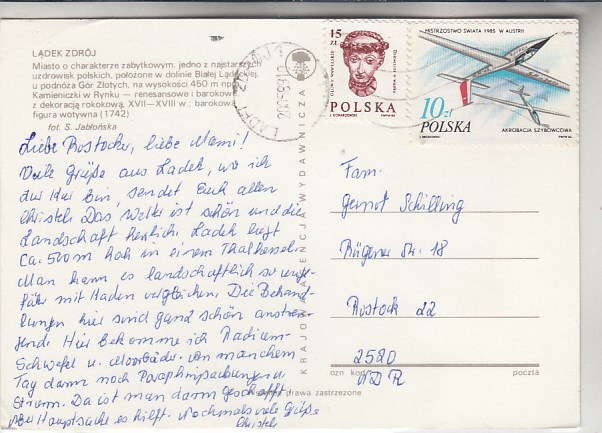 LĄDEK ZDRÓJ
Miasto o charakterze zabytkowym, jedno z najstarszych
uzdrowisk polskich, położone w dolinie Białej Lądeckiej,
u podnóża Gór Złotych, na wysokości 450 m npm.
Kamieniczki w Rynku — renesansowe i barokowe
z dekoracją rokokową, XVII—XVIII w.; barokowa
figura wotywna (1742)
fot. S. Jabłońska
Liebe Rostocker, liebe Mami!
Viele Grüße aus Ladek, wo ich
zur Kur bin, sendet Euch allen
Christel. Das Wetter ist schön und die
Landschaft herrlich. Ladek liegt
Ca. 500 m hoch in einem Thalkessel.
Man kann es landschaftlich so unge-
fähr mit Baden vergleichen. Die Behand-
lungen hier sind ganz schön anstren-
gend. Hier bekomme ich Radium-
Schwefel u. Moorbäder. An manchem
Tag dann noch Paraphinpackungen u.
Strom. Da ist man dann geschafft.
Aber Hauptsache es hilft. Nochmals viele Grüße
Christel
KRAJOWA AGENCJA WYDAWNICZA
15 ZŁ
POLSKA
MISTRZOSTWO ŚWIATA 1985 W AUSTRII
10 zł
POLSKA
AKROBACJA SZYBOWCOWA
Fam.
Gernot Schilling
Rügener Str. 18
Rostock 22
2520
ozn. kod poczta
DDR
prawa zastrzeżone